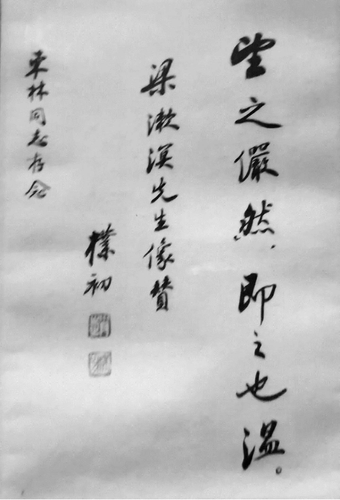 望之儼然，即之也温。
梁漱溟先生像贊
樸初
東林同志存念